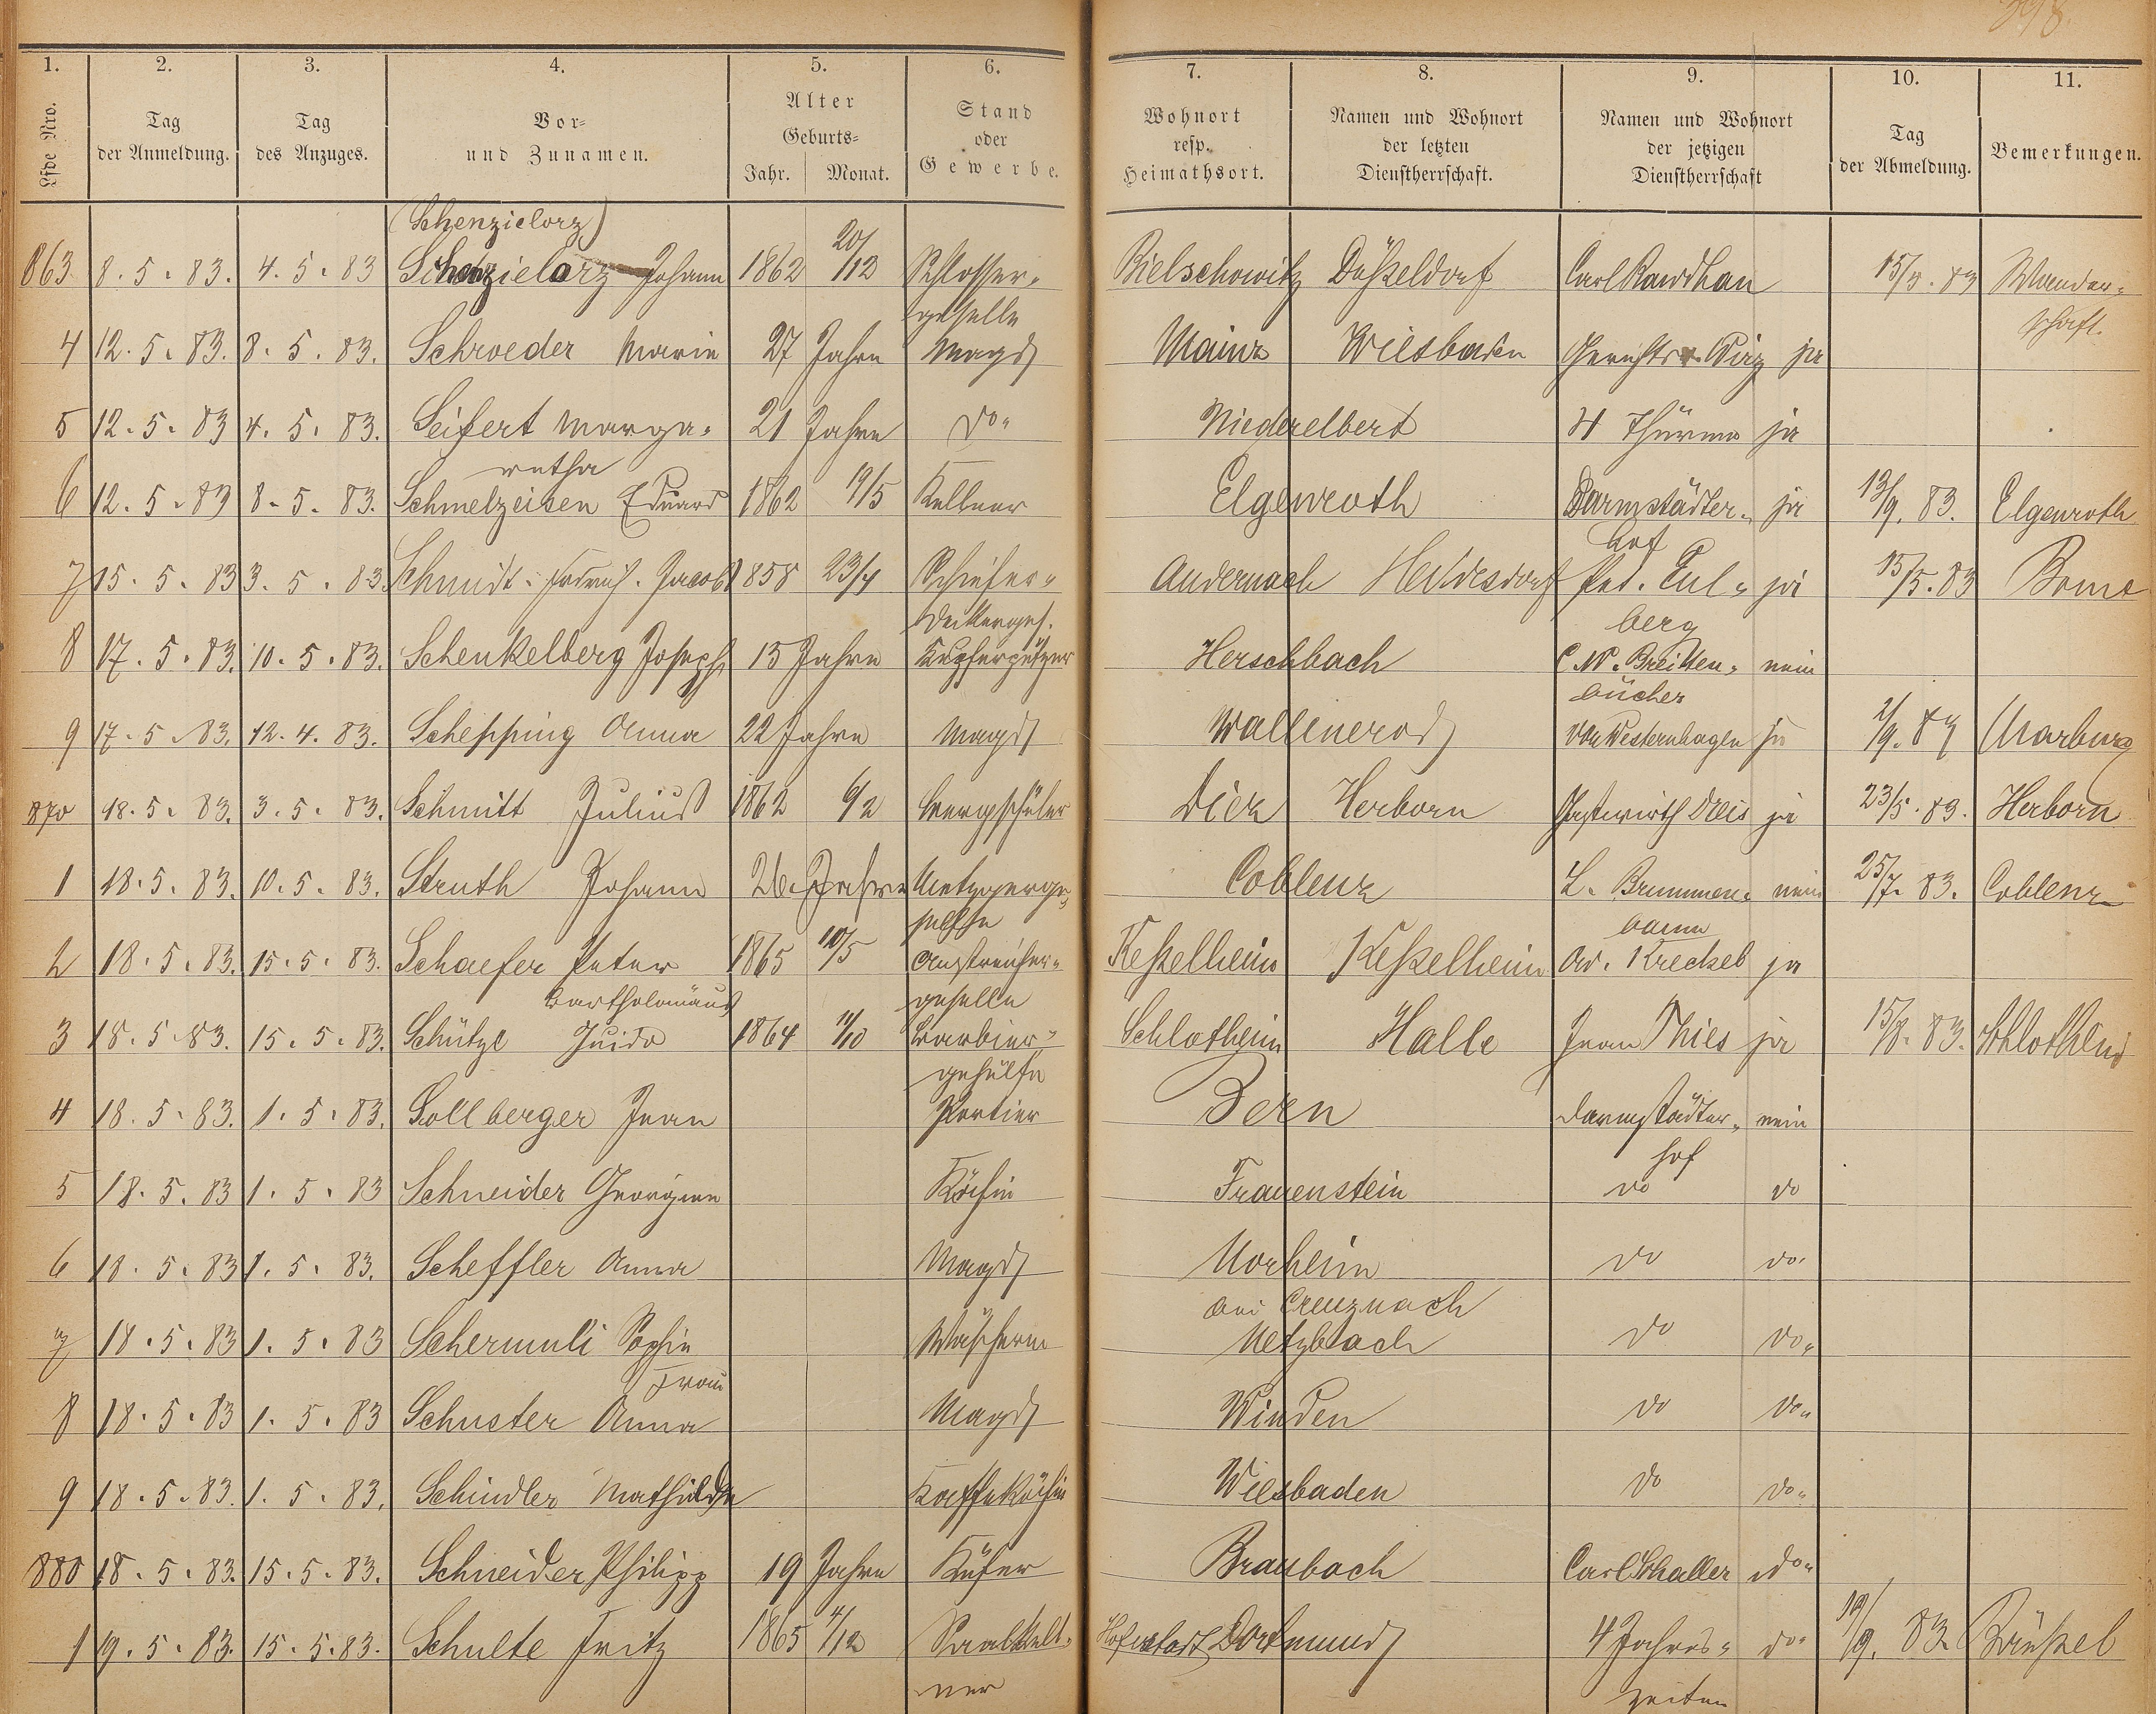 398.
1. 2. 3. 4. 5. 6. 7. 8. 9. 10. 11.
Lfde Nro. Tag der Anmeldung. Tag des Anzuges. Vor= und Zunamen. Alter Geburts= Jahr. Monat. Stand oder Gewerbe. Wohnort resp. Heimathsort. Namen und Wohnort der letzten Dienstherrschaft. Namen und Wohnort der jetzigen Dienstherrschaft Tag der Abmeldung. Bemerkungen.
(Schenzielorz)
863 8. 5. 83. 4. 5. 83 Schenzielorz Johann 1862 20/12 Schlosser= Bielschowitz Düßeldorf Carl 15/5. 83 Wander=
geselle schaft.
4 12. 5. 83. 8. 5. 83. Schroeder Marie 27 Jahre Magd Mainz Wiesbaden ja
5 12. 5. 83 4. 5. 83. Seifert Marga= 21 Jahre do" Niederelbert 4 Thürme ja
retha
6 12. 5. 83 8. 5. 83. Schmelzeisen Eduard 1862 19/5 Kellner Elgenroth Darmstädter= ja 13/9. 83. Elgenroth
hof
7 15. 5. 83 3. 5. 83. Schmidt Jacob 1858 23/4 Schiefer= Andernach Heddesdorf Pet. Eul= ja 15/5. 83
deckerges. berg
8 17. 5. 83. 10. 5. 83. Schenkelberg Joseph 15 Jahre Kupferputzer Herschbach C. W. Breitten= nein
bücher
9 17. 5. 83. 12. 4. 83. Schepping Anna 22 Jahre Magd Wallmerod von Westernhagen ja 2/9. 84 Marburg
870 18. 5. 83. 3. 5. 83. Schmitt Julius 1862 6/2 Bergschüler Diez Herborn Gastwirth ja 23/5. 83. Herborn
1 18. 5. 83. 10. 5. 83. Struth Johann 26 Jahre Metzgerge= Coblenz L. Brummen= nein 25/7. 83. Coblenz
selle baum
2 18. 5. 83. 15. 5. 83. Schaefer Peter 1865 10/5 Anstreicher= Keßelheim Keßelheim Ad. Kreckel ja
Bartholomäus geselle
3 18. 5. 83. 15. 5. 83. Schütze Guido 1864 11/10 Barbier= Schlotheim Halle Jean Thies ja 15/8. 83. Schlotheim
gehülfe
4 18. 5. 83. 1. 5. 83. Sollberger Jean Portier Bern Darmstädter= nein
hof
5 18. 5. 83 1. 5. 83 Schneider Georgine Köchin Frauenstein do do
6 18. 5. 83 1. 5. 83. Scheffler Anna Magd Norheim do do.
bei Creuznach
7 18. 5. 83 1. 5. 83 Schermuli Sophie Wäscherin Metzbach do do"
Frau
8 18. 5. 83 1. 5. 83 Schuster Anna Magd Winden do do"
9 18. 5. 83. 1. 5. 83. Schindler Mathilde Kaffeköchin Wiesbaden do do"
880 18. 5. 83. 15. 5. 83. Schneider Philipp 19 Jahre Küfer Braubach Carl Schaller do"
1 19. 5. 83. 15. 5. 83. Schulte Fritz 1865 4/12 Saalkell= Dortmund 4 Jahres= do" 19/9. 83. Brüßel
ner zeiten